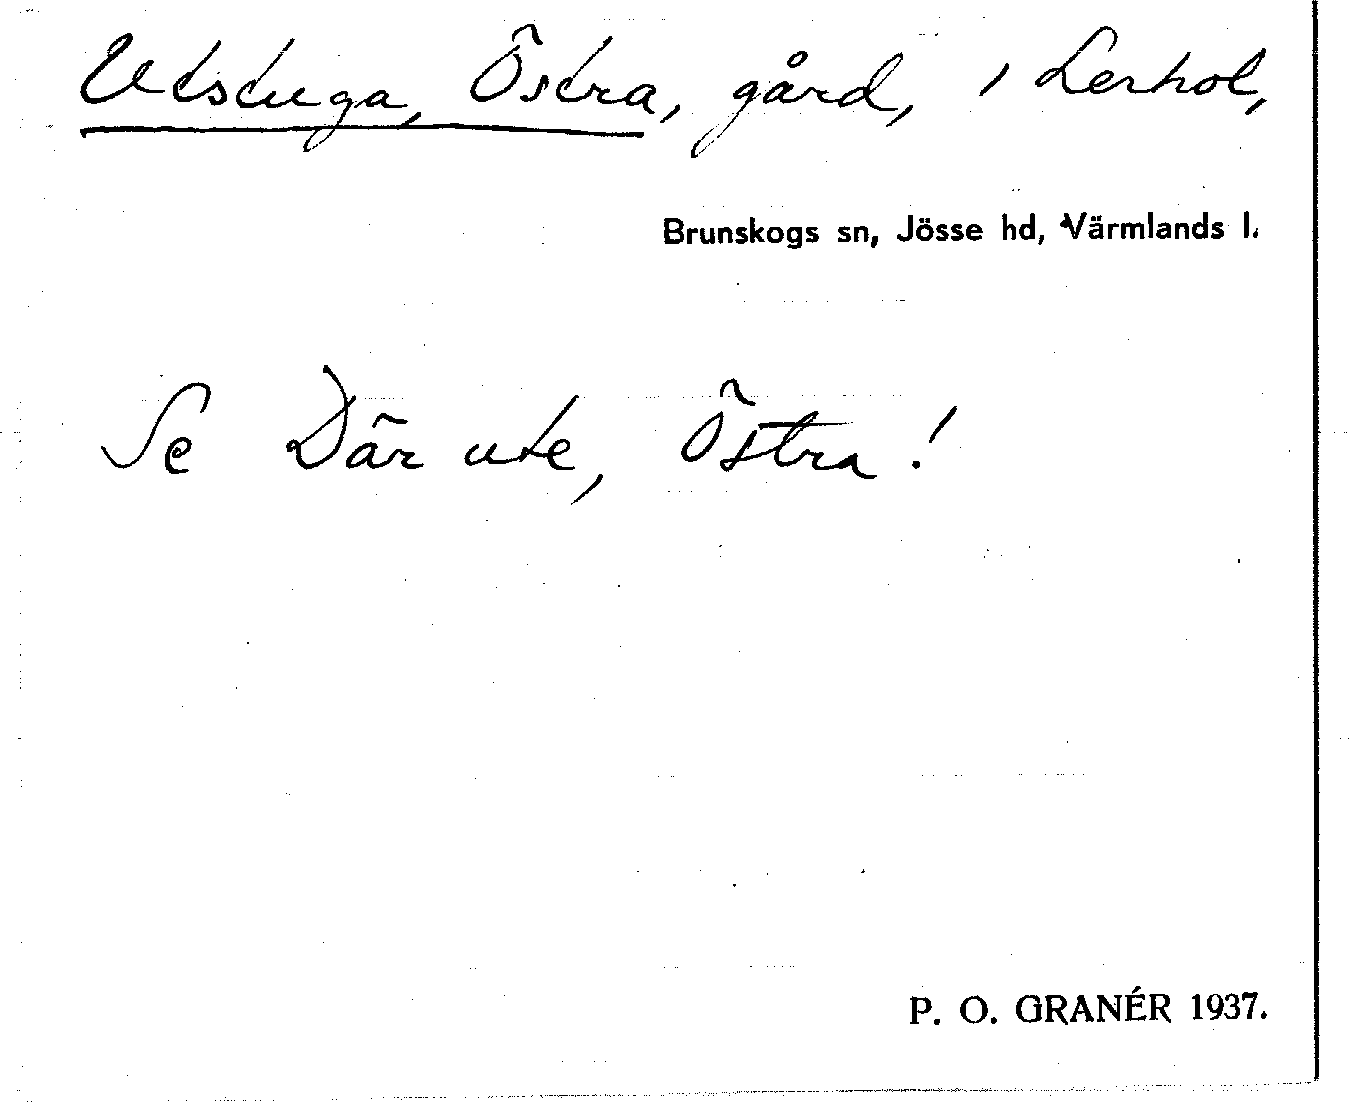 Utstuga, Östra, gård, i Lerhol,
Brunskogs sn, Jösse hd, Värmlands l.
Se Där ute, Östra!
P. O. GRANÉR 1937.